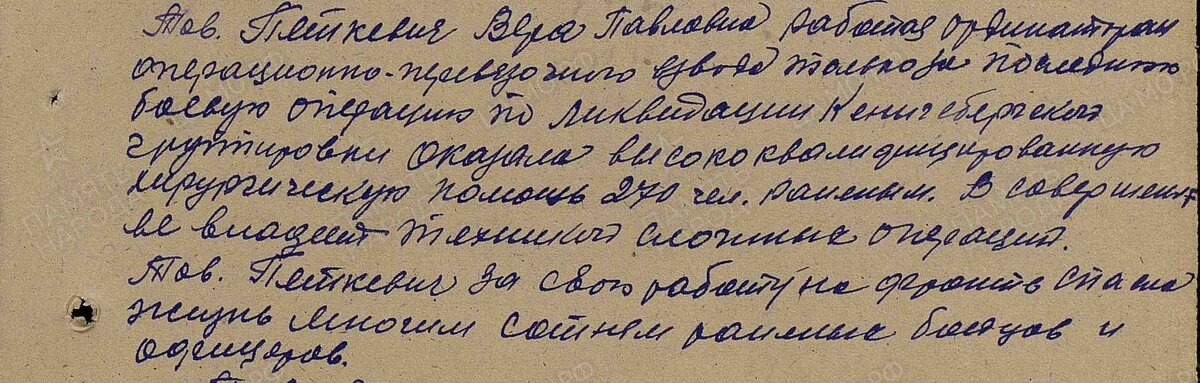 Тов. Петкевич Вера Павловна работая ординатором
операционно-перевязочного взвода только за последнюю
боевую операцию по ликвидации Кенигсбергской
группировки оказала высококвалифицированную
хирургическую помощь 270 чел. раненым. В совершенст-
ве владеет техникой сложных операций.
Тов. Петкевич за свою работу на фронте спасла
жизнь многим сотням раненых бойцов и
офицеров.